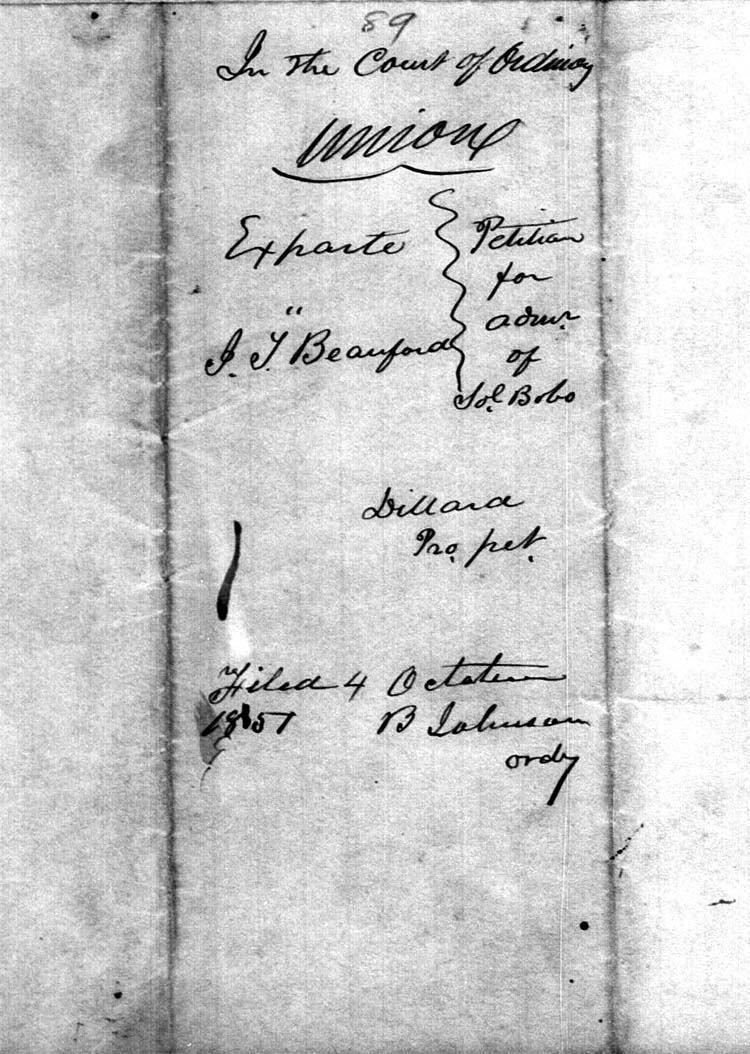 89
In the Court of Ordinary
Union
Exparte
"
J. T. Beauford
Petition
for
admr.
of
Sol. Bobo
Dillard
Pro. pet.
Filed 4 October
1851 B Johnson
ordy